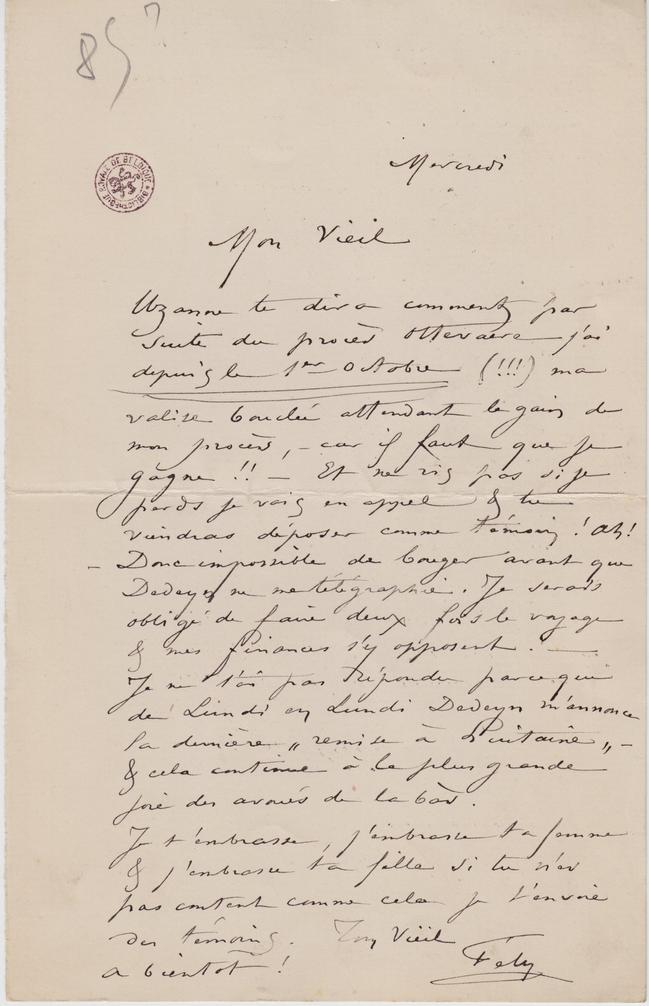 85
BIBLIOTHÈQUE ROYALE DE BELGIQUE
Mercredi
Mon Vieil
Uzanne te dira comment, par
suite du procès Ottevaere j'ai
depuis le 1er Octobre (!!!) ma
valise bouclée attendant le gain de
mon procès, – car il faut que je
gagne !! – Et ne ris pas si je
perds je vais en appel & tu
viendras déposer comme témoin ! Ah !
– Donc impossible de bouger avant que
Dedeyn ne me télégraphie. Je serais
obligé de faire deux fois le voyage
& mes finances s'y opposent ! –
Je ne t'ai pas répondu parceque
de Lundi en Lundi Dedeyn m'annonce
la dernière „ remise à huitaine „ –
& cela continue à la plus grande
joie des avoués de la bàs.
Je t'embrasse, j'embrasse ta femme
& j'embrasse ta fille si tu n'es
pas content comme cela je t'envoie
des témoins. Ton Vieil
a bientôt ! Fély